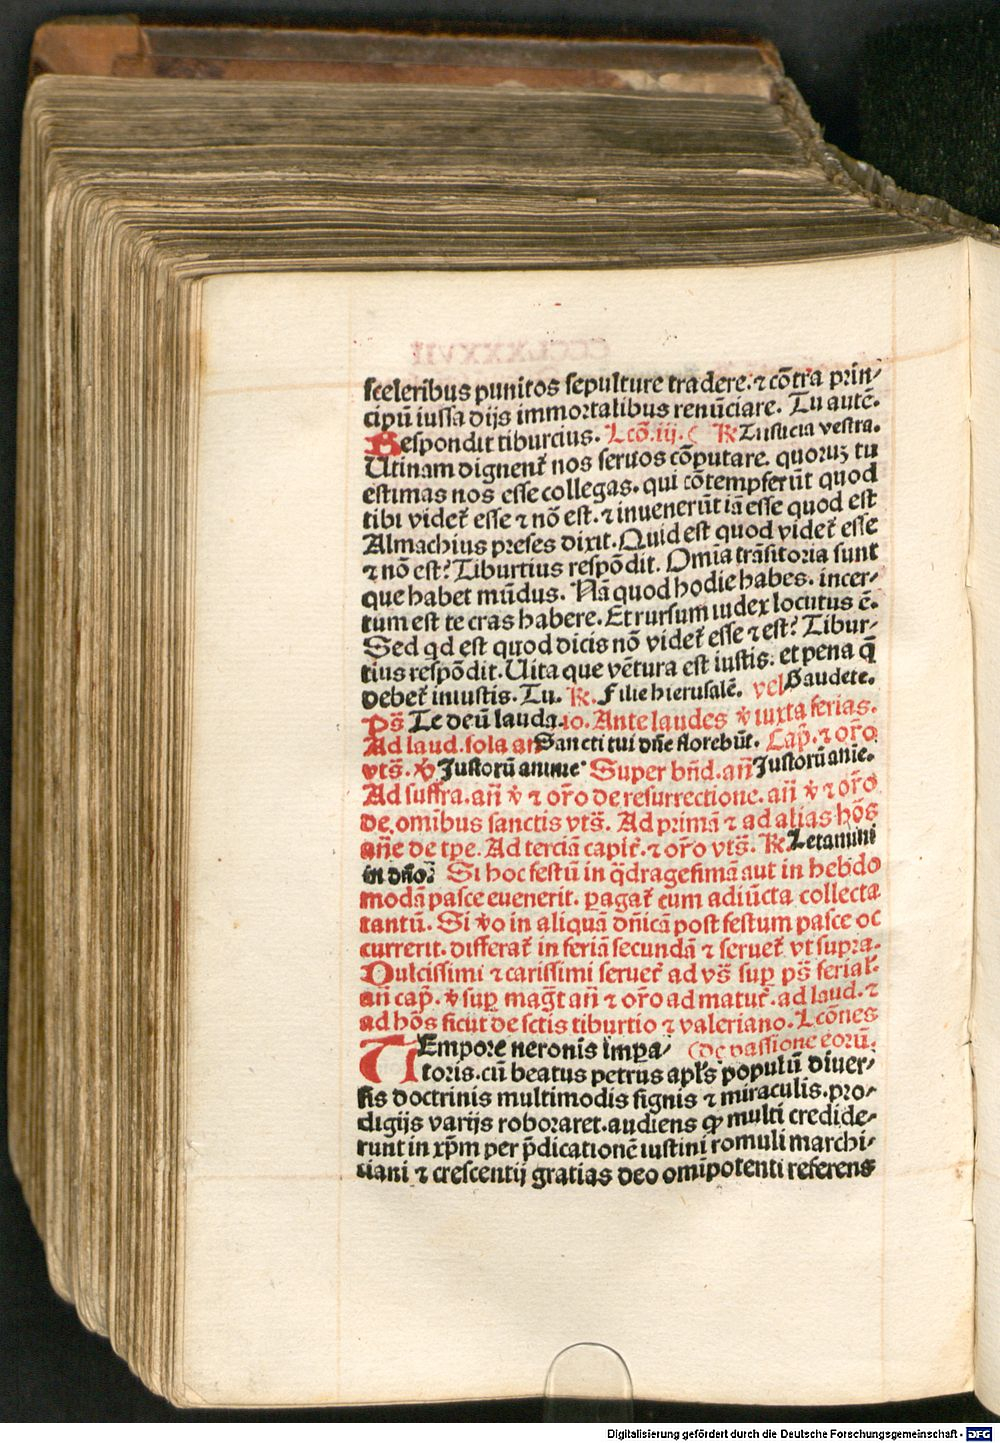 sceleribus punitos sepulture tradere. ⁊ cõtra prin⸗
cipũ iussa dijs immortalibus renũciare. Tu autẽ.
Respondit tiburcius. Lcõ. iij. ℟ Iusticia vestra.
Utinam dignent᷑ nos seruos cõputare. quoruꝫ tu
estimas nos esse collegas. qui cõtempserũt quod
tibi videt᷑ esse ⁊ nõ est. ⁊ inuenerũt iã esse quod est
Almachius preses dixit. Quid est quod videt᷑ esse
⁊ nõ est? Tiburtius respõdit. Omĩa trãsitoria sunt
que habet mũdus. Nã quod hodie habes. incer⸗
tum est te cras habere. Et rursum iudex locutus ẽ.
Sed qd est quod dicis nõ videt᷑ esse ⁊ est? Tibur⸗
tius respõdit. Uita que vẽtura est iustis. et pena q̃
debet᷑ iniustis. Tu. ℟. Filie hierusalẽ. vel Gaudete.
p̃s Te deũ lauda. io. Ante laudes ℣ iuxta ferias.
Ad laud. sola an̄ Sancti tui dñe florebũt. Cap̃. ⁊ or̃o
vts̃. ℣ Iustorũ anime Super bñd. an̄ Iustorũ anie.
Ad suffra. an̄ ℣ ⁊ or̃o de resurrectione. an̄ ℣ ⁊ or̃o
de omĩbus sanctis vts̃. Ad primã ⁊ ad alias hõs
an̄e de tpe. Ad terciã capit᷑. ⁊ or̃o vts̃. ℟ Letamini
in dño. Si hoc festũ in q̃dragesimã aut in hebdo
modã pasce euenerit. pagat᷑ cum adiũcta collecta
tantũ. Si ℣o in aliquã dñicã post festum pasce oc
currerit. differat᷑ in feriã secundã ⁊ seruet᷑ vt supra.
Dulcissimi ⁊ carissimi seruet᷑ ad vs̃ sup ps̃ ferial᷑.
an̄ cap̃. ℣ sup mag̃t an̄ ⁊ or̃o ad matut᷑. ad laud. ⁊
ad hõs sicut de sctis tiburtio ⁊ valeriano. Lcõnes
TEmpore neronis impa⸗ (de passione eorũ.
toris. cũ beatus petrus apl̃s populũ diuer⸗
sis doctrinis multimodis signis ⁊ miraculis. pro⸗
digijs varijs roboraret. audiens ꝙ multi credide⸗
runt in xp̃m per p̃dicationẽ iustini romuli marchi⸗
tiani ⁊ crescentij gratias deo omĩpotenti referens
Digitalisierung gefördert durch die Deutsche Forschungsgemeinschaft - DFG